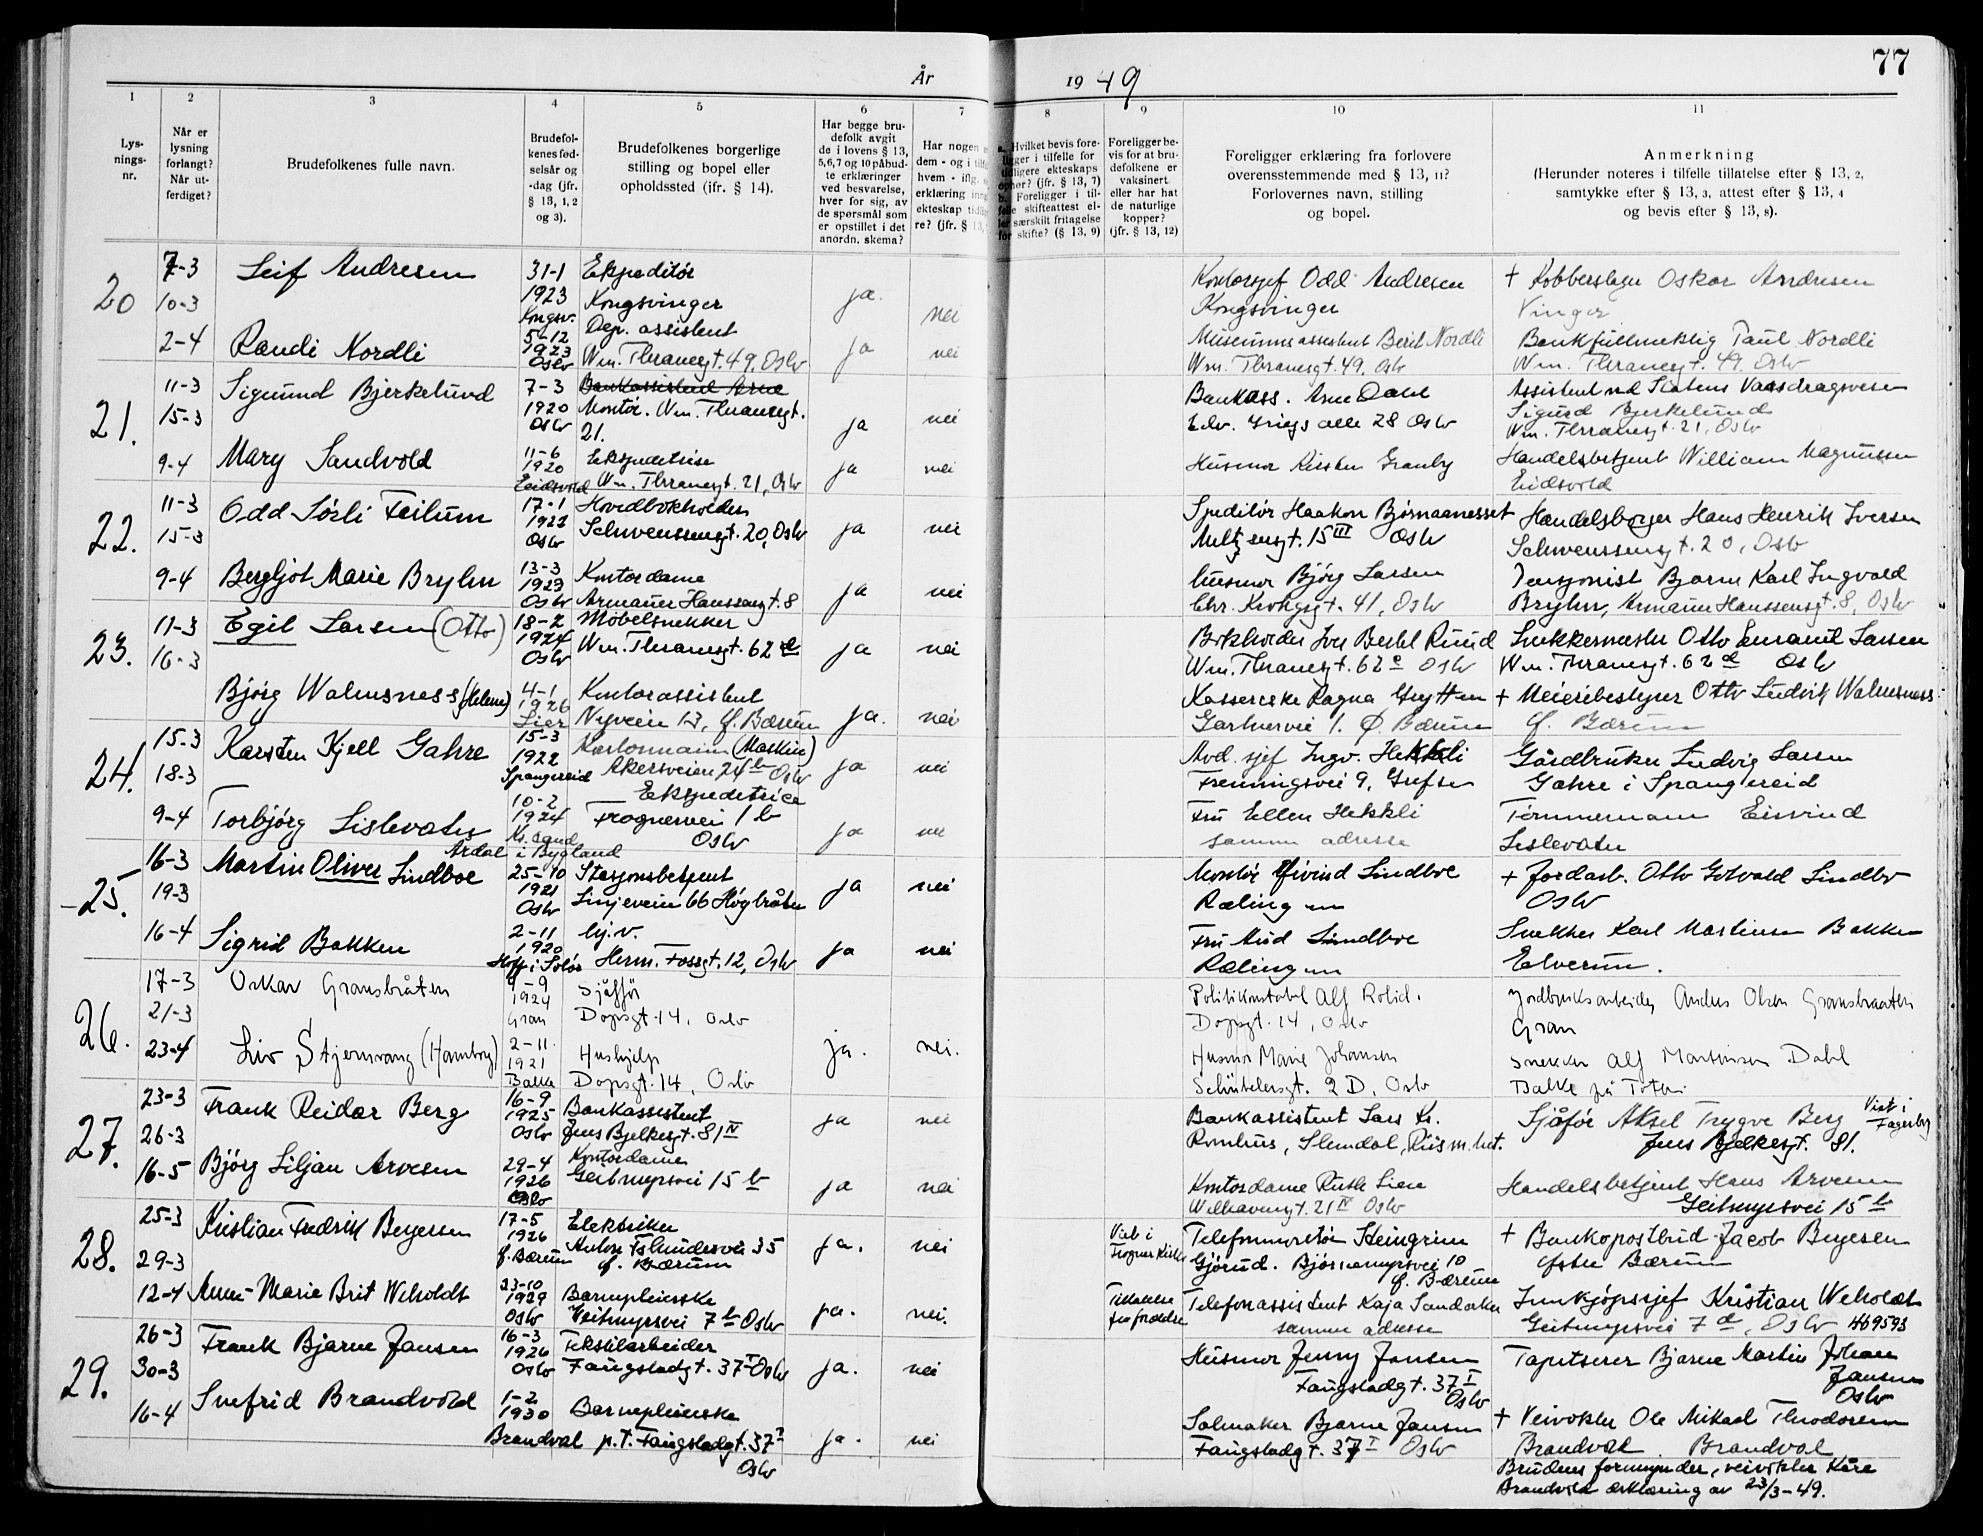 År 1949
77
1 2 3 4 5 6 7 8 9 10 11
Lys-
nings-
nr.
Når er
lysning
forlangt?
Når ut-
ferdiget?
Brudefolkenes fulle navn.
Brudefol-
kenes fød-
selsår og
-dag (jfr.
§ 13, 1, 2
og 3).
Brudefolkenes borgerlige
stilling og bopel eller
opholdssted (jfr. § 14).
Har begge bru-
defolk avgit
de i lovens § 13,
5,6,7 og 10 påbud-
te erklæringer
ved besvarelse,
hver for sig, av
de spørsmål som
er opstillet i det
anordn. skema?
Har nogen
dem - og i
hvem - iflg.
erklæring
ekteskap
re? (jfr. § 13,
a. Hvilket bevis fore-
ligger i tilfelle for
tidligere ekteskaps
ophør? (jfr. § 13, 7)
b. Foreligger i til-
felle skifteattest el-
ler særskilt fritagelse
for skifte? (§ 13, 9)
Foreligger be-
vis for at bru-
defolkene er
vaksinert
eller har hat
de naturlige
kopper?
(jfr. § 13, 12)
Foreligger erklæring fra forlovere
overensstemmende med § 13, 11?
Forlovernes navn, stilling
og bopel.
Anmerkning
(Herunder noteres i tilfelle tillatelse efter § 13, 2,
samtykke efter § 13, 3, attest efter § 13, 4
og bevis efter § 13, 8).
20
7-3
10-3
2-4
Leif Andresen
31-1
1923
Kongsv.
Ekspeditør
Kongsvinger
ja.
nei
Kontorsjef Odd Andresen
Kongsvinger
+ Kobberslager Oskar Andresen
Vinger
Randi Nordli
5-12
1923
Oslo
Dep. assistent
Wm. Thranesgt. 49, Oslo
ja
nei
Museumsassistent Berit Nordli
Wm. Thranesgt. 49, Oslo
Bankfullmektig Paul Nordli
Wm. Thranesgt. 49, Oslo
21.
11-3
15-3
9-4
Sigmund Bjerkelund
7-3
1920
Oslo
Bankassistent Arne
Montør. Wm. Thranesgt.
21.
ja
nei
Bankass. Arne Dahl
Edv. Griegs alle 28 Oslo
Assistent ved Statens Vassdragsvesen
Sigurd Bjerkelund
Wm. Thranesgt. 21, Oslo
Mary Sandvold
11-6
1920
Eidsvold
Ekspeditrise
Wm. Thranesgt. 21, Oslo
ja
nei
Husmor Kirsten Granby
Handelsbetjent William Magnussen
Eidsvold
22.
11-3
15-3
9-4
Odd Sørli Feilum
17-1
1922
Oslo
Hovedbokholder
Schwenssensgt. 20, Oslo
ja
nei
Speditør Haakon Bjørnaanesset
Meltzersgt. 15 III Oslo
Handelsborger Hans Henrik Iversen
Schwenssensgt. 20, Oslo
Bergljot Marie Bryhn
13-3
1923
Oslo
Kontordame
Armauer Hanssensgt. 8
ja
nei
husmor Bjørg Larsen
Chr. Krohgsgt. 41, Oslo
Pensjonist Bjarne Karl Ingvald
Bryhn, Armauer Hanssensgt. 8, Oslo
23.
11-3
16-3
Egil Larsen (Otto)
18-2
1924
Oslo
Møbelsnekker
Wm. Thranesgt. 62 d
ja
nei
Bokholder Iver Bertel Ruud
Wm. Thranesgt. 62 e Oslo
Snekkermester Otto Emanuel Larsen
Wm. Thranesgt. 62 d Oslo
Bjørg Walmsness (Helene)
4-1
1926
Lier
Kontorassistent
Nyveien 13, Ø. Bærum
ja.
nei
Kassererske Ragna Grytten
Gartnervei 1. Ø. Bærum
+ Meieribestyrer Otto Ludvik Walmsness
Ø. Bærum
24.
15-3
18-3
9-4
Karsten Kjell Gahre
15-3
1922
Spangereid
Kartonmann (Maskin)
Akersveien 24 b Oslo
ja
nei
Avd. sjef Ingv. Hekkli
Frenningsvei 9, Grefsen
Gårdbruker Ludvig Larsen
Gahre i Spangereid
Torbjørg Lislevatn
10-2
1924
Kr. sand
Årdal i Bygland
Ekspeditrice
Frognervei 1 b
Oslo
ja
nei
Fru Ellen Hekkli
samme adresse
Tømmermann Eivind
Lislevatn
25.
16-3
19-3
16-4
Martin Oliver Lindboe
25-10
1921
Oslo
Stasjonsbetjent
Linjeveien 66 Høybråten
ja
nei
Montør Eivind Lindboe
Rælingen
+ Jordarb. Otto Gotvald Lindbo
Oslo
Sigrid Bakken
2-11
1920
Hof i Solør
hj.v.
Herm. Fossgt. 12, Oslo
ja
nei
Fru Aud Lindboe
Rælingen
Snekker Karl Martinsen Bakken
Elverum.
26.
17-3
21-3
23-4
Oskar Gransbråten
9-9
1924
Gran
Sjåffør
Dopsgt. 14, Oslo
Politikonstabel Alf Rolid.
Dopsgt. 14, Oslo
Jordbruksarbeider Anders Olsen Gransbraaten
Gran
Liv Stjernvang (Hamborg)
2-11
1921
Balke
Hushjelp
Dopsgt. 14, Oslo
ja.
nei.
Husmor Marie Johansen
Schübelersgt. 2 D, Oslo
Snekker Alf Martinsen Dahl
Balke på Toten
27.
23-3
26-3
16-5
Frank Reidar Berg
16-9
1925
Oslo
Bankassistent
Jens Bjelkesgt. 81 IV
ja
nei
Bankassistent Lars Kr.
Romhus, Slemdal, Riis m. hst.
Sjåfør Aksel Trygve Berg
Jens Bjelkesgt. 81.
Viet i
Fagerborg
Bjørg Liljan Arvesen
29-4
1926
Oslo
Kontordame
Geitmyrsvei 15 b
ja
nei
Kontordame Ruth Lien
Welhavensgt. 21 IV Oslo
Handelsbetjent Hans Arvesen
Geitmyrsvei 15 b
28.
25-3
29-3
12-4
Kristian Fredrik Beyersen
17-5
1926
Ø. Bærum
Elektriker
Anton Tschudersvei 35
Ø. Bærum
ja.
nei
Viet i
Frogner Kirke
Telefonmontør Steingrim
Gjørud. Bjørnemyrsvei 10
Ø. Bærum
+ Bankopostbud Jacob Beyersen
Østre Bærum
Anne-Marie Brit Weholdt
23-10
1929
Oslo
Barnepleierske
Geitmyrsvei 7 d Oslo
ja.
nei.
Tillatelse
fra foreldre
Telefonassistent Kaja Sandaker
samme adresse
Innkjøpssjef Kristian Weholdt
Geitmyrsvei 7 d, Oslo 469593
29.
26-3
30-3
16-4
Frank Bjarne Jansen
16-3
1926
Oslo
Tekstilarbeider
Faugstadgt. 37 I Oslo
ja.
nei
Husmor Jenny Jansen
Faugstadgt. 37 I
Oslo
Tapetserer Bjarne Martin Johan
Jansen
Oslo
Snefrid Brandvold
1-2
1930
Brandval
Barnepleierske
p.t. Faugstadgt. 37 I
Oslo
ja.
nei
Salmaker Bjarne Jansen
Faugstadgt. 37 I Oslo
+ Veivokter Ole Mikael Theodorsen
Brandvold Brandval
Brudens formynder, veivokter Kåre
Brandvold erklæring av 23/3-49.